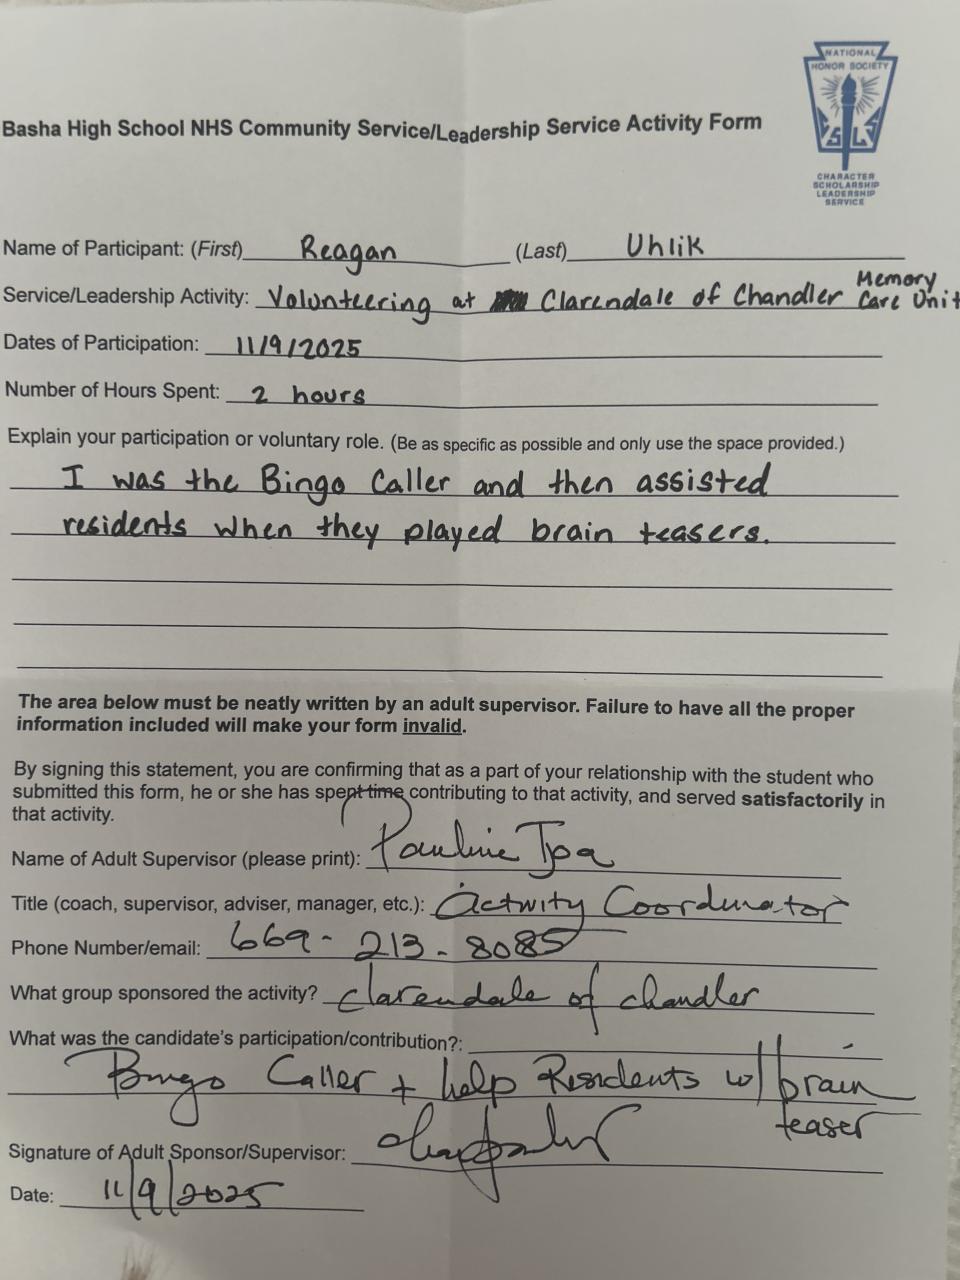 NATIONAL
HONOR SOCIETY
S L S
CHARACTER
SCHOLARSHIP
LEADERSHIP
SERVICE
Basha High School NHS Community Service/Leadership Service Activity Form
Name of Participant: (First) Reagan (Last) Uhlik
Service/Leadership Activity: Volunteering at Clarendale of Chandler Memory Care Unit
Dates of Participation: 11/9/2025
Number of Hours Spent: 2 hours
Explain your participation or voluntary role. (Be as specific as possible and only use the space provided.)
I was the Bingo Caller and then assisted
residents when they played brain teasers.
The area below must be neatly written by an adult supervisor. Failure to have all the proper
information included will make your form invalid.
By signing this statement, you are confirming that as a part of your relationship with the student who
submitted this form, he or she has spent time contributing to that activity, and served satisfactorily in
that activity.
Name of Adult Supervisor (please print): Pauline
Title (coach, supervisor, adviser, manager, etc.): Activity Coordinator
Phone Number/email: 669-213-8085
What group sponsored the activity? Clarendale of chandler
What was the candidate's participation/contribution?:
Bingo Caller + help Residents w/ brain
teaser
Signature of Adult Sponsor/Supervisor:
Date: 11/9/2025